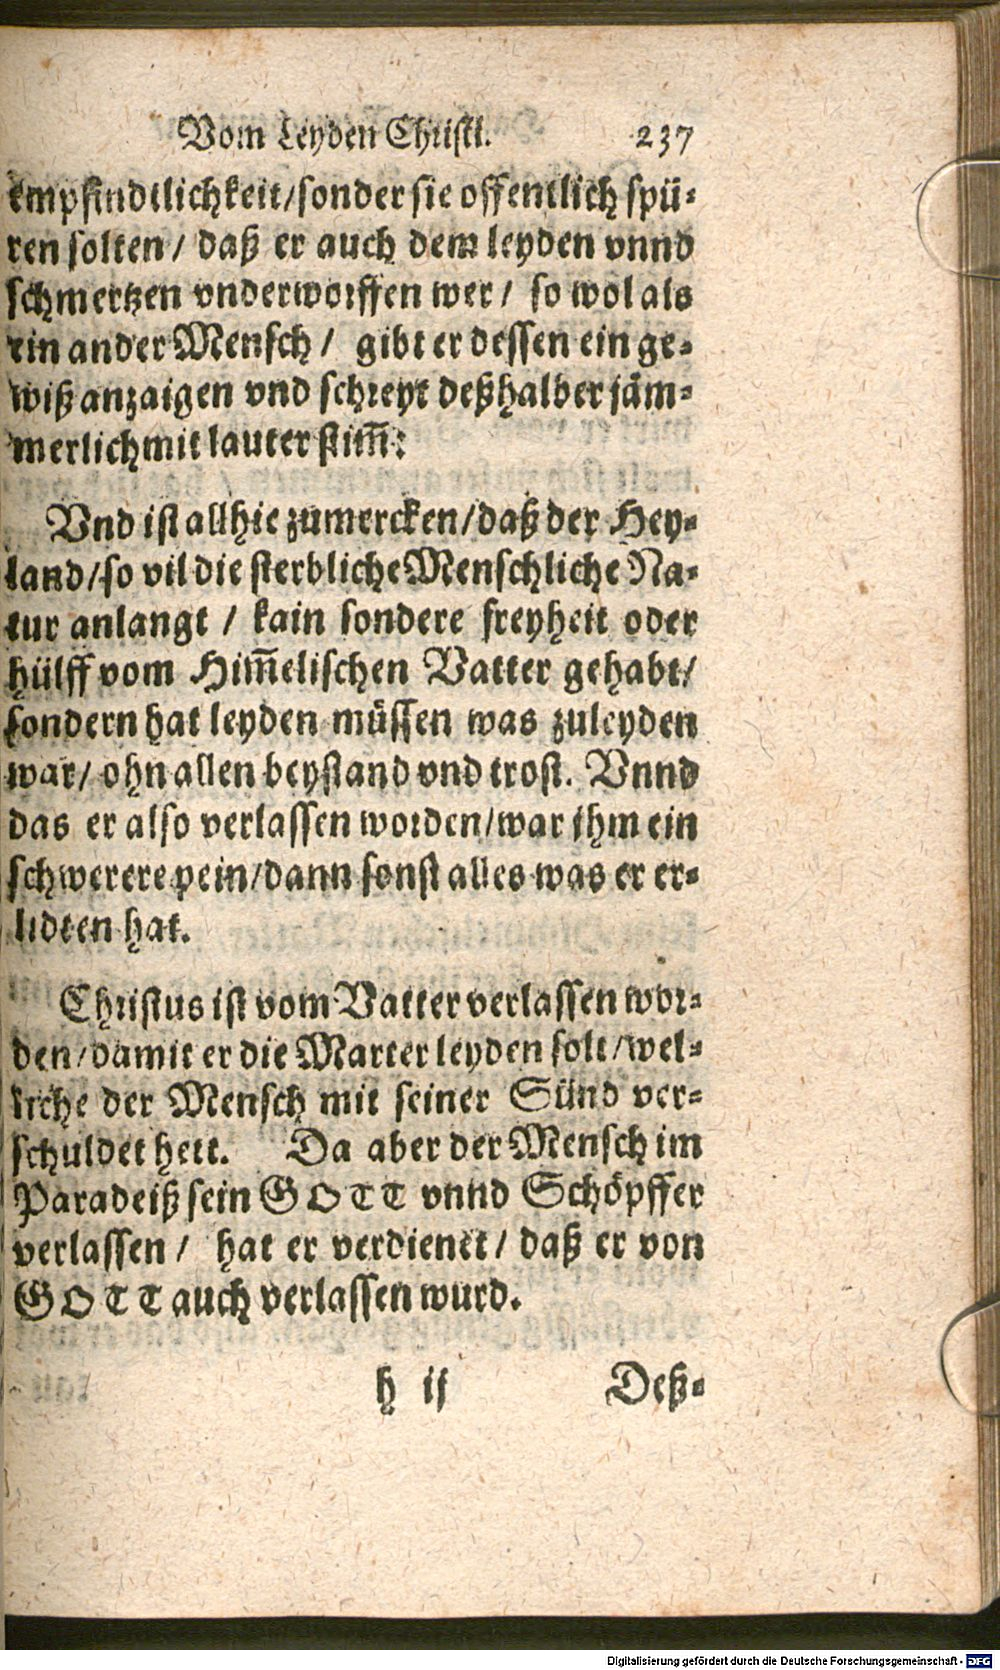 Vom Leyden Christi. 237
empfindtlichkeit/sonder sie offentlich spü-
ren solten / daß er auch dem leyden vnnd
schmertzen vnderworffen wer / so wol als
ein ander Mensch / gibt er dessen ein ge-
wiß anzaigen vnd schreyt deßhalber jäm-
merlich mit lauter stim̃:
Vnd ist allhie zumercken/daß der Hey-
land/so vil die sterbliche Menschliche Na-
tur anlangt / kain sondere freyheit oder
hülff vom Him̃elischen Vatter gehabt/
sondern hat leyden müssen was zuleyden
war/ ohn allen beystand vnd trost. Vnnd
das er also verlassen worden/war jhm ein
schwerere pein/dann sonst alles was er er-
lidten hat.
Christus ist vom Vatter verlassen wor-
den/damit er die Marter leyden solt/wel-
liche der Mensch mit seiner Sünd ver-
schuldet hett. Da aber der Mensch im
Paradeiß sein GOTT vnnd Schöpffer
verlassen / hat er verdienet / daß er von
GOTT auch verlassen wurd.
h ij Deß-
Digitalisierung gefördert durch die Deutsche Forschungsgemeinschaft - DFG